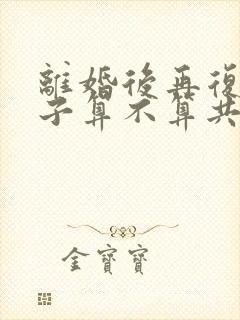 離婚後再復
子算不算共
金寶寶